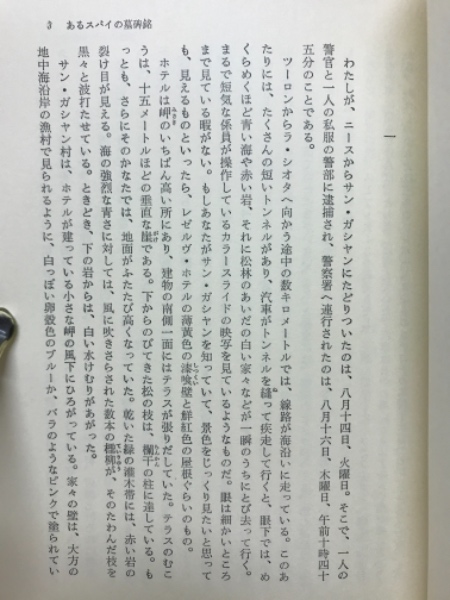 3 あるスパイの墓碑銘
一
わたしが、ニースからサン・ガシャンにたどりついたのは、八月十四日、火曜日。そこで、一人の
警官と一人の私服の警部に逮捕され、警察署へ連行されたのは、八月十六日、木曜日、午前十時四十
五分のことである。
ツーロンからラ・シオタへ向かう途中の数キロメートルでは、線路が海沿いに走っている。このあ
たりには、たくさんの短いトンネルがあり、汽車がトンネルを縫って疾走して行くと、眼下では、め
くらめくほど青い海や赤い岩、それに松林のあいだの白い家々などが一瞬のうちにとび去って行く。
まるで短気な係員が操作しているカラースライドの映写を見ているようなものだ。眼は細かいところ
まで見ている暇がない。もしあなたがサン・ガシャンを知っていて、景色をじっくり見たいと思って
も、見えるものといったら、レゼルヴ・ホテルの薄黄色の漆喰壁と鮮紅色の屋根ぐらいのもの。
ホテルは岬のいちばん高い所にあり、建物の南側一面にはテラスが張りだしていた。テラスのむこ
うは、十五メートルほどの垂直な崖である。下からのびてきた松の枝は、欄干の柱に達している。も
っとも、さらにそのかなたでは、地面がふたたび高くなっていた。乾いた緑の灌木帯には、赤い岩の
裂け目が見える。海の強烈な青さに対しては、風に吹きさらされた数本の檉柳が、そのたわんだ枝を
黒々と波打たせている。ときどき、下の岩からは、白い水けむりがあがった。
サン・ガシャン村は、ホテルが建っている小さな岬の風下にひろがっている。家々の壁は、大方の
地中海沿岸の漁村で見られるように、白っぽい卵殻色のブルーか、バラのようなピンクで塗られてい